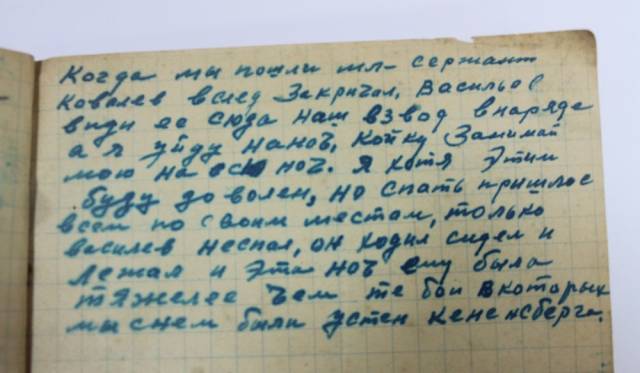 Когда мы пошли мл- сержант
Ковалев вслед Закричал, Васильев
види ее сюда наш взвод внаряде
а я уйду наноч, Койку Занимай
мою на всю ноч. Я хотя Этим
буду доволен, но спать пришлос
всем по своим местам, только
василев неспал, он ходил сидел и
Лежал и Эта ноч ему была
тяжелее Чем те бои вкоторых
мы снем были устен кенексберга.